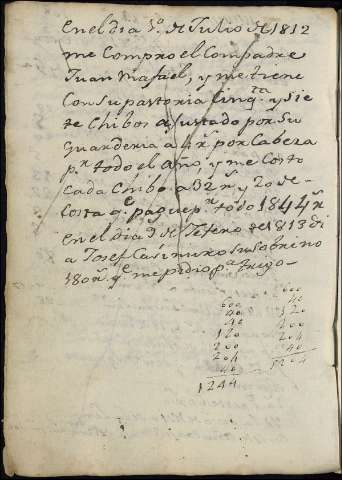 En el dia 1º. de Julio de 1812
me Compro el Compadre
Juan Rafael, y me tiene
Con su pastoria Cinqta. y sie
te Chibos ajustado por su
guarderia a 4 rs. por Cabeza
pr. todo el año, y me Costo
Cada Chibo a 32 rs. y 20 de
Costa qe. pague pr. todo 1844 rs.
En el dia 9 de Febrero de 1813 di
a Josef Casimiro su Sobrino
180 rs. qe. me pidio pa. trigo
600
40
40
120
200
204
40
1244
600
40
120
200
204
40
1204